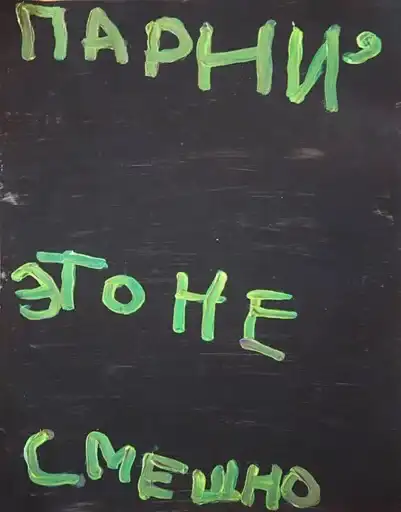 ПАРНИ,
ЭТО НЕ
СМЕШНО